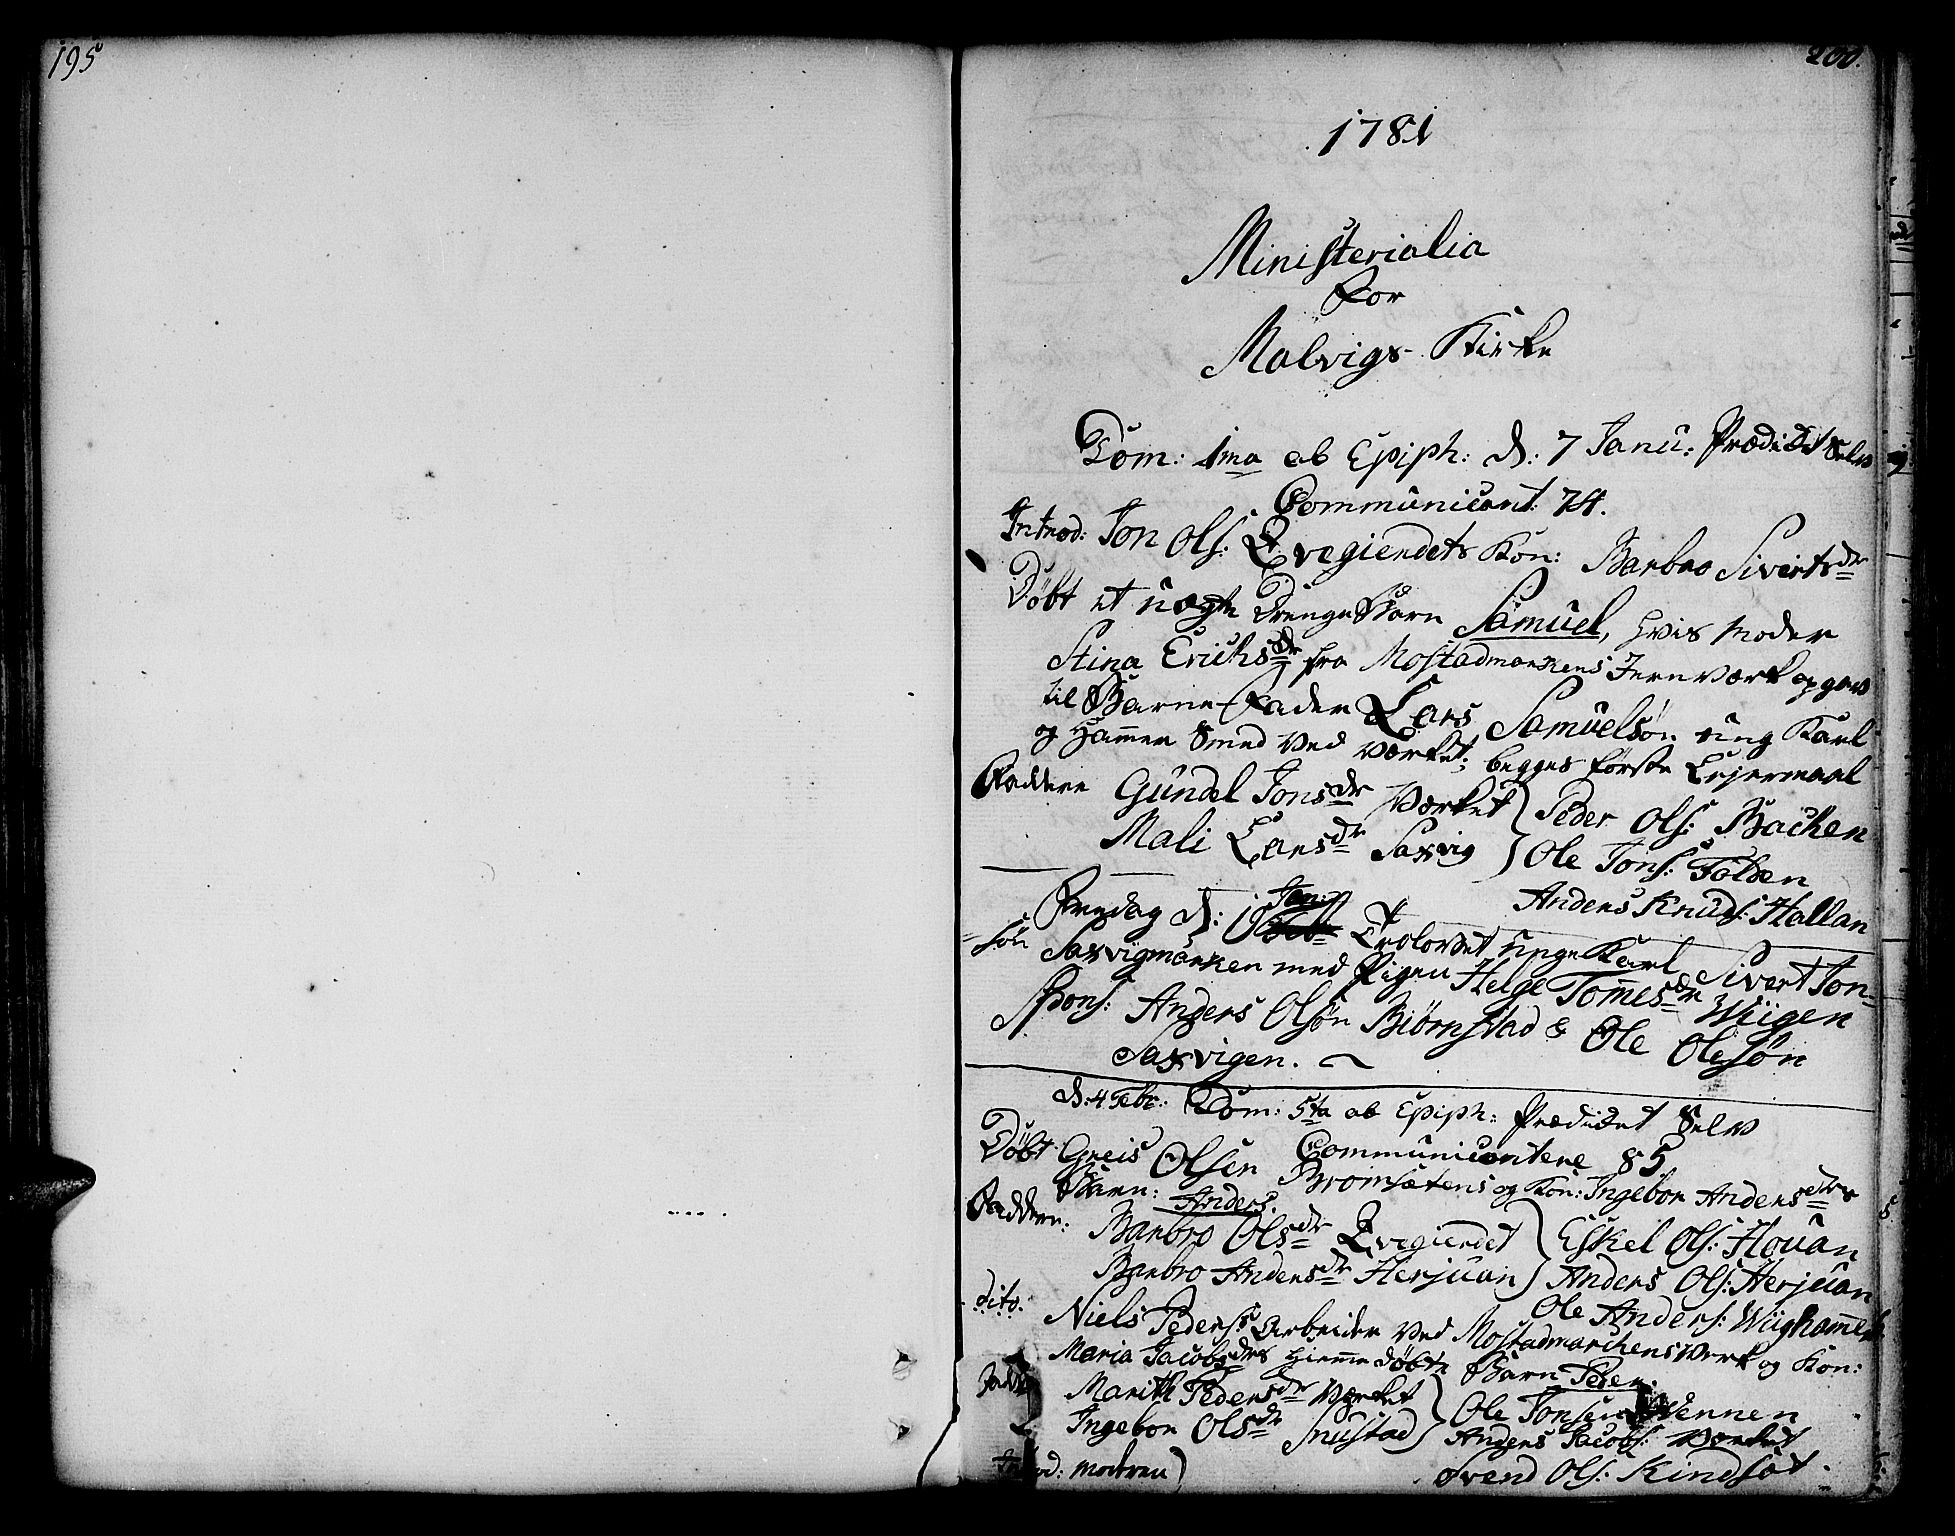 195
200.
1781
Ministerialia
for
Malvigs Kirke
Dom: 1ma ab Epiph: d: 7 Janu: Prædiket Selv
Communicant: 74.
Introd: Jon Ols: Qvegiendets Kon: Barbro Sivertsdr
Döbt et uægte Drenge Barn Samuel, hvis Moder
Stina Erichsdr fra Mostadmarkens Jernværk opgav
til Barne-Fader Lars Samuelsøn ung Karl
og Hammer Smed Ved Værket; begges første Lejermaal
Faddere Gundel Jonsdr Værket } Peder Ols: Backen
Mali Larsdr Saxvig } Ole Jons: Folden
Anders Knuds: Hallan
Fredag d: Jan: Trolovet Unge Karl Sivert Jon-
=søn Saxvigmarken med Pigen Helge Tommesdr Wiigen
Spons: Anders Olsøn Biörnstad & Ole Olesøn
Saxvigen.
d: 4 Febr: Dom: 5ta ab Epiph: Prædiket Selv
Communicantere 85
Döbt Greis Olsen Bromsetens og Kon: Ingebor Andersdrs
Barn: Anders.
Faddere: Barbro Olsdr Qvegiendet } Eskel Ols: Hovan
Barbro Andersdr Herjuan } Anders Ols: Herjuan
Ole Anders: Wiighammer
dito: Niels Peders: Arbeider Ved Mostadmarchens Verk og Kon:
Maria Jacobsdrs Hiemme döbte Barn Peder.
Fadd Marith Pedersdr Værket } Ole Jonsen Vennen
Ingebor Olsdr Snustad } Anders Jacobs: Værket
Introd: Modren) Svend Ols: Kindsæt.